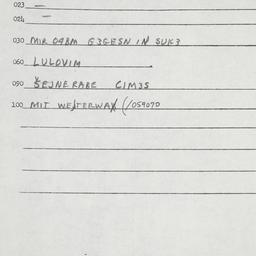 023 —
024 —
030 MIR 04BM G3GESN IN SUK3
060 LULOVIM
090 ŠEJNE RABE CIM3S
100 MIT WESTERWAX (/059070